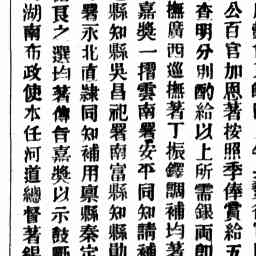 公百官加恩著按照季俸賞給五
查明分別酌給以上所需銀兩即
撫廣西巡撫著丁振鐸調補均著
嘉獎一摺雲南署安平同知請補
縣知縣吳昌祀署南富縣知縣勛
署永北直隸同知補用縣秦定
艮之選均著傳旨嘉獎以示鼓勵
湖南布政使本任河道總督著錫